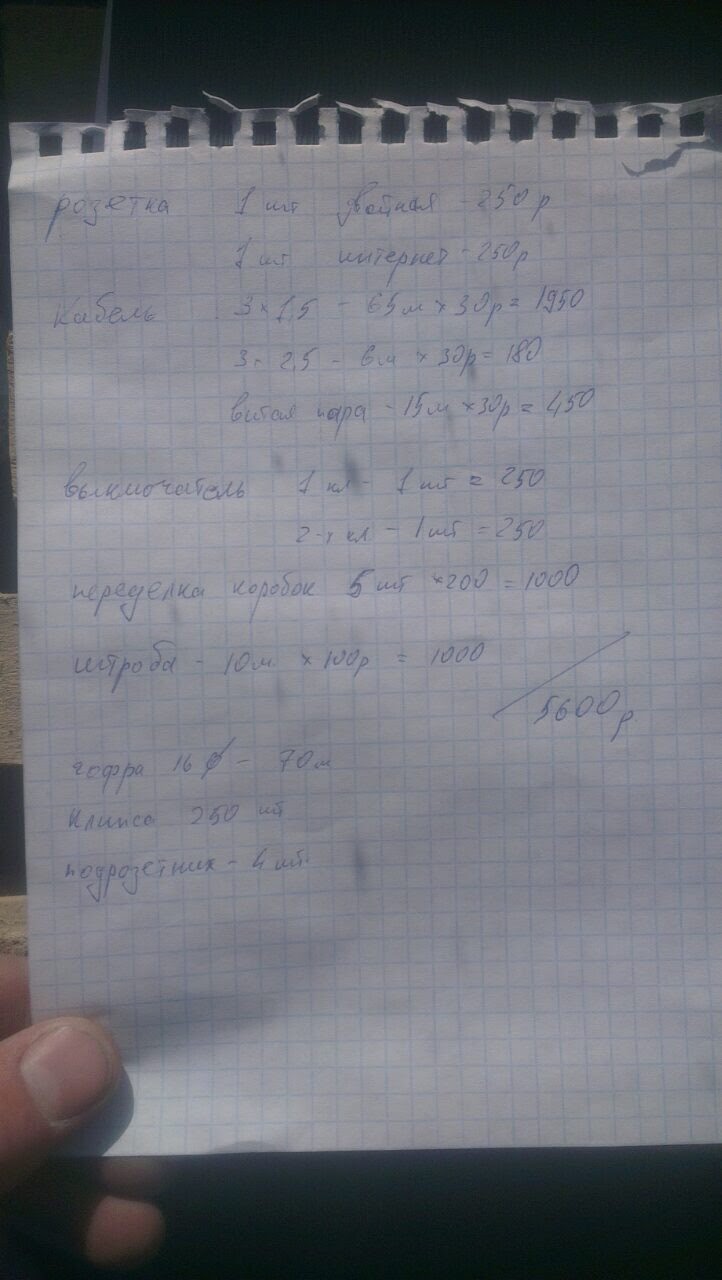 розетка 1 шт двойная - 250р
1 шт интернет - 250р
Кабель 3×1,5 - 65м × 30р = 1950
3× 2,5 - 6м × 30р = 180
витая пара - 15м × 30р = 450
выключатель 1 кл - 1 шт = 250
2-х кл - 1шт = 250
переделка коробок 5 шт ×200 = 1000
штроба - 10м × 100р = 1000
5600р
гофра 16 ∅ - 70м
клипса 250 шт
подрозетник - 4 шт.